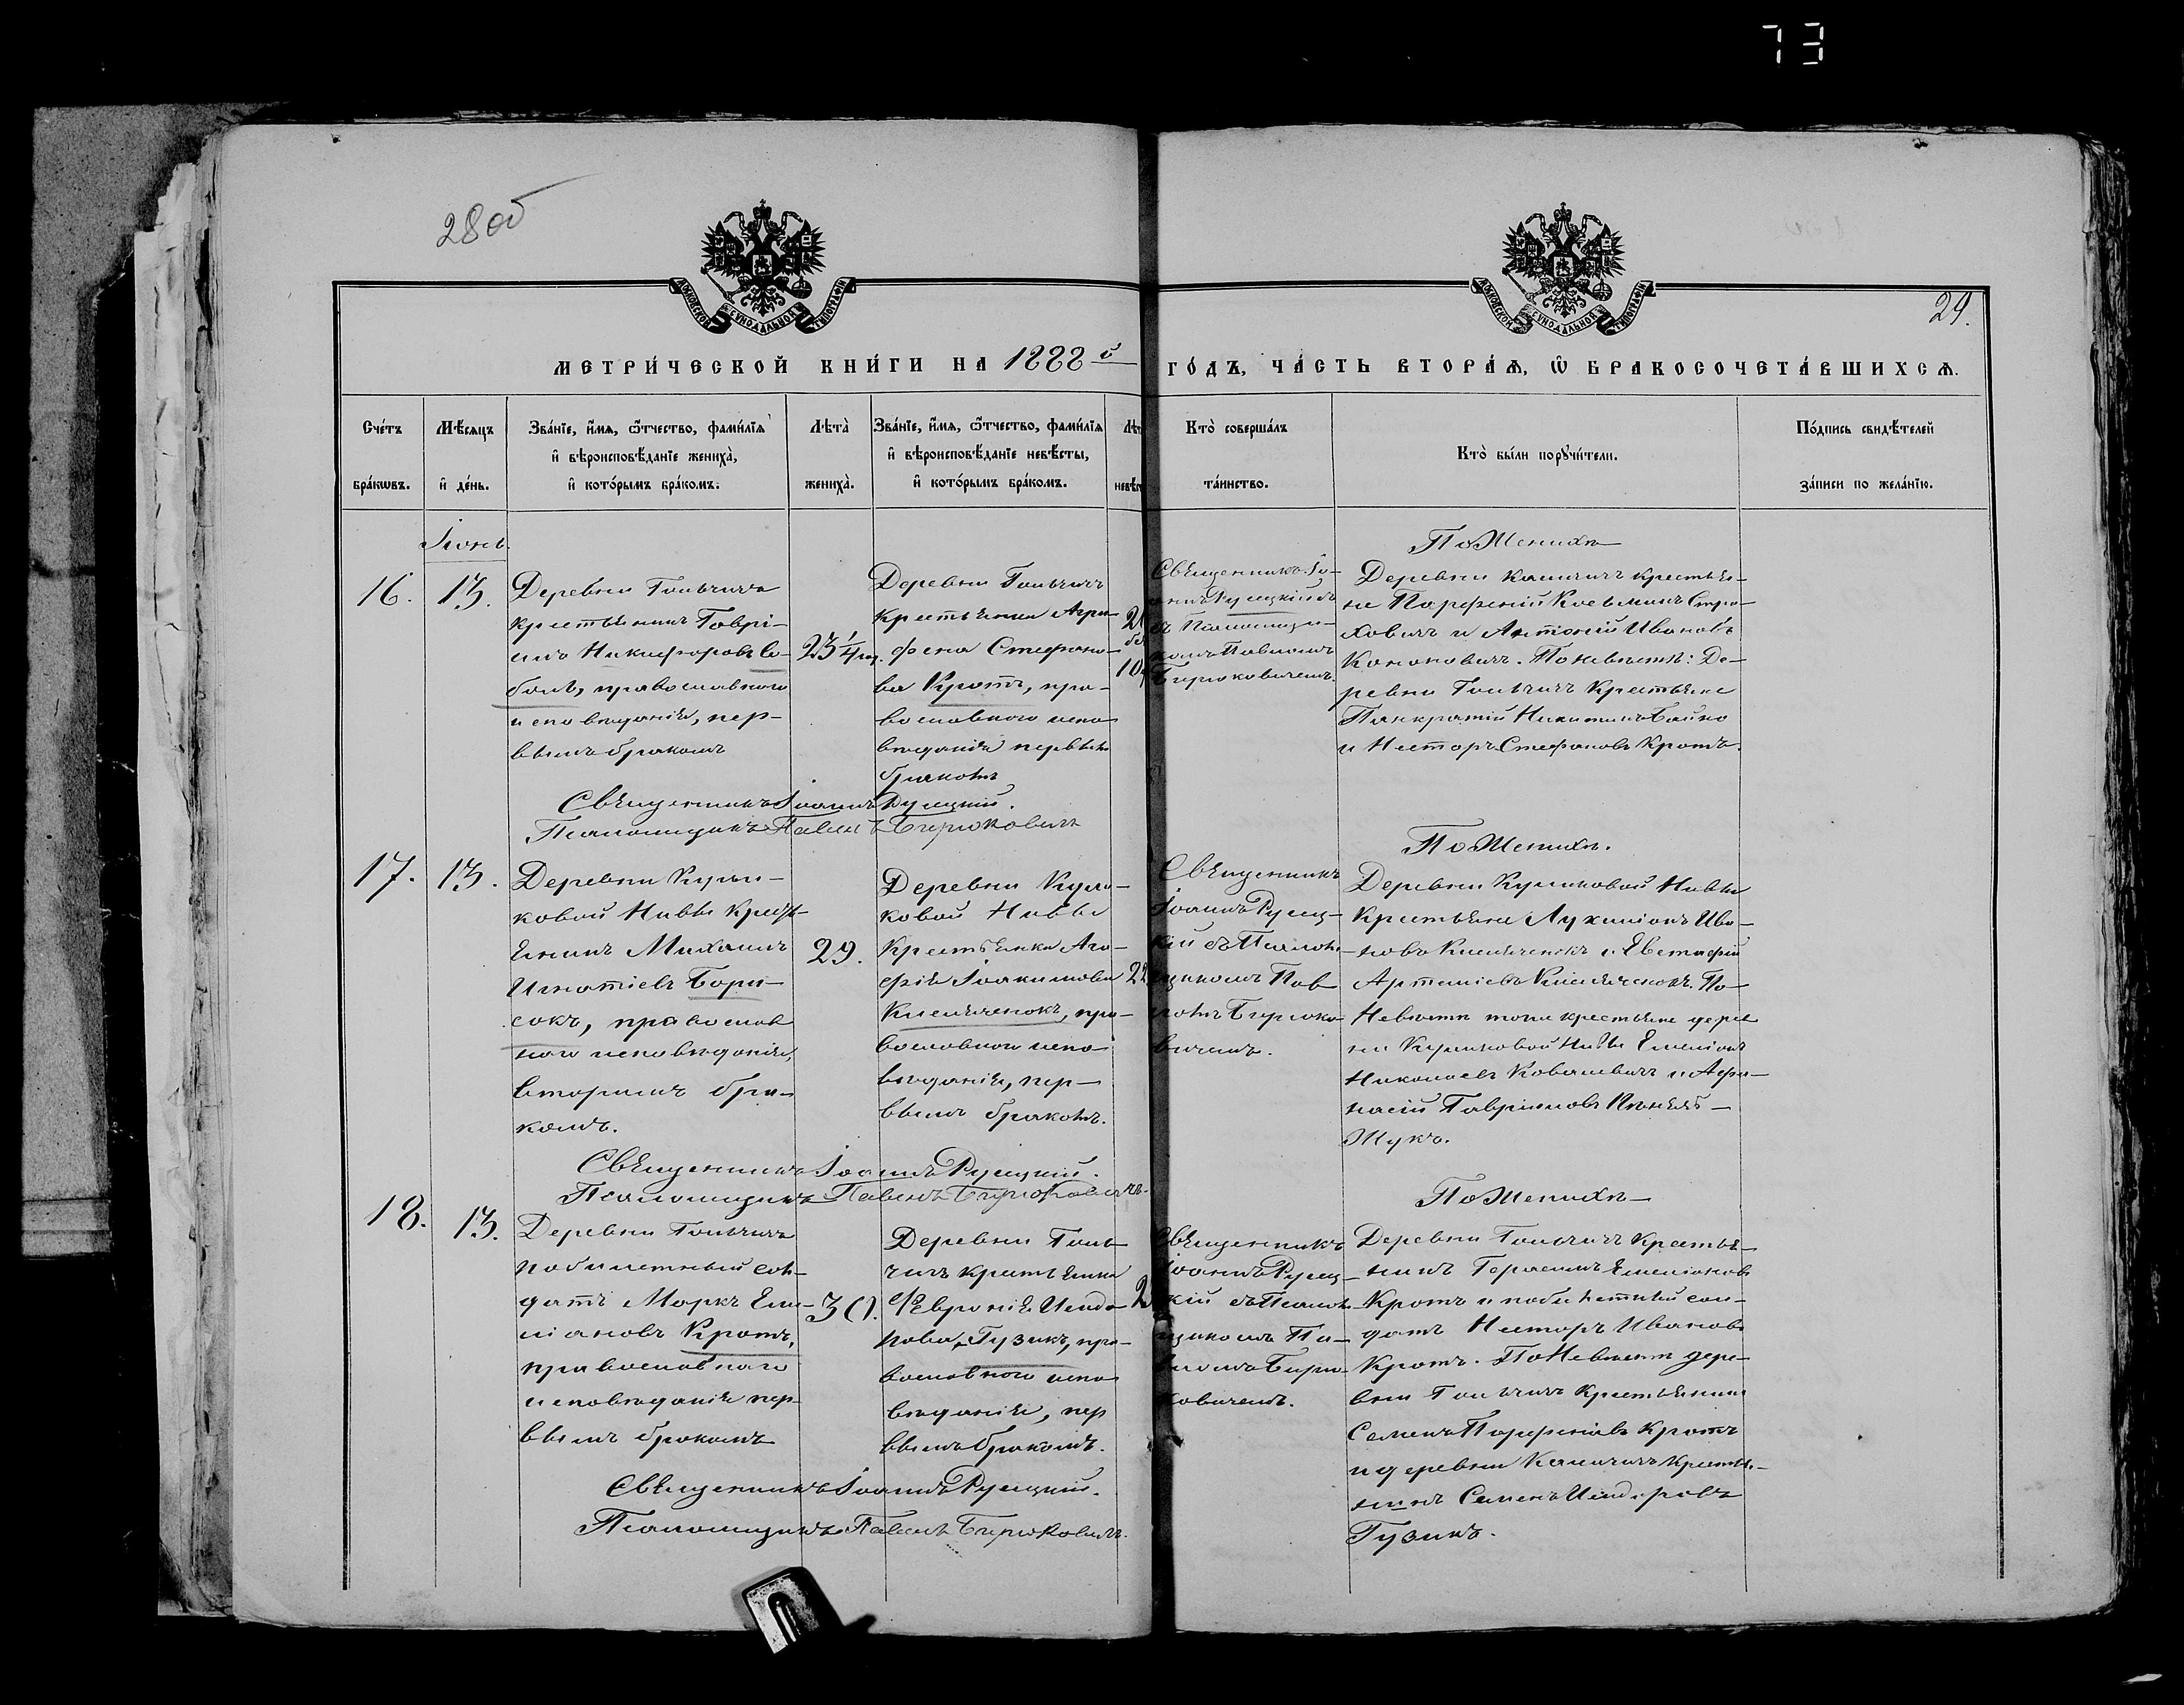 73
28 об
29.
МОСКОВСКОЙ СѴНОДАЛЬНОЙ ТИПОГРАФІИ
МОСКОВСКОЙ СѴНОДАЛЬНОЙ ТИПОГРАФІИ
МЕТРИ́ЧЕСКОЙ КНИ́ГИ НА 1888й ГО́ДЪ, ЧА́СТЬ ВТОРА́Ѧ, Ѡ҆ БРАКОСОЧЕТА́ВШИХСѦ.
Сче́тъ
бра́кѡвъ.
Мѣ́сяцъ
и҆ де́нь.
Зва́нїе, и҆́мѧ, ѻ҆́тчество, фами́лїѧ
и҆ вѣроисповѣ́данїе жениха̀,
и҆ кото́рымъ бра́комъ.
Лѣта̀
жениха̀.
Зва́нїе, и҆́мѧ, ѻ҆́тчество, фами́лїѧ
и҆ вѣроисповѣ́данїе невѣ́сты,
и҆ кото́рымъ бра́комъ.
Лѣт
невѣс
Кто̀ соверша́лъ
та́инство.
Кто̀ бы́ли порꙋчи́тели.
По́дпись свидѣ́телей
за́писи по жела́нїю.
Іюнь.
16.
13.
Деревни Гольчичъ
крестьянинъ Гаврі-
илъ Никифоровъ Со-
боль, православнаго
исповѣданія, пер-
вымъ бракомъ
23 1/4
Деревни Гольчичъ
крестьянка Агри-
фена Стефано-
ва Кротъ, пра-
вославного испо
вѣданія первымъ
бракомъ
Священникъ Іо-
аннъ Русецкій съ
Псаломщи-
комъ Павломъ
Бирюковичемъ.
По Женихѣ
Деревни Калчичъ крестья-
не Парфеній Косьминъ Стра-
ховичъ и Антоній Ивановъ
Кононовичъ. По невѣстѣ: Де-
ревни Гольчичъ Крестьяне
Панкратій Никитинъ Бойко
и Несторъ Стефановъ Кротъ.
Священникъ Іоаннъ Русецкій.
Псаломщикъ Павелъ Бирюковичъ
17.
13.
Деревни Кули-
ковой Нивы крест-
янинъ Михаилъ
Игнатіевъ Бори-
сокъ, православ
ного исповѣданія,
вторымъ бра-
комъ.
29.
Деревни Кули-
ковой Нивы
Крестьянка Ага-
фія Іоакимова
Кисляченокъ, пра-
вославного испо
вѣданія, пер-
вымъ бракомъ.
22
Священникъ
Іоаннъ Русец-
кій съ Псалом-
щикомъ Пав
ломъ Бирюко
вичемъ.
По Женихѣ.
Деревни Куликовой Нивы
Крестьяне Лукиліонъ Ива-
новъ Кисляченокъ и Евстафій
Артеміевъ Кисляченокъ. По-
Невѣстѣ тоже крестьяне дерев
ни Куликовой Нивы Емеліонъ
Николаевъ Ковалевичъ и Афа-
насій Гавриловъ
Жукъ.
Священникъ Іоаннъ Русецкій.
Псаломщикъ Павелъ Бирюковичъ.
18.
13.
Деревни Гольчичъ
побилетный сол-
датъ Маркъ Еме-
ліановъ Кротъ,
православнаго
исповѣданія пер-
вымъ бракомъ
30.
Деревни Голь-
чичъ крестьянка
Февронія Исидо-
рова Гузикъ, пра-
вославного испо
вѣданія, пер
вымъ бракомъ.
Священникъ
Іоаннъ Русец-
кій съ Псалом-
щикомъ Па-
вломъ Бирю-
ковичемъ.
По Женихѣ
Деревни Гольчичъ Крестья-
нинъ Герасимъ Емеліоновъ
Кротъ и побилетный сол-
датъ Несторъ Ивановъ
Кротъ. По Невѣстѣ дере-
вни Гольчичъ Крестьянинъ
Семенъ Парфеніевъ Кротъ
и деревни Калчичъ Крестья-
нинъ Семенъ Исидоровъ
Гузикъ.
Священникъ Іоаннъ Русецкій.
Псаломщикъ Павелъ Бирюковичъ.